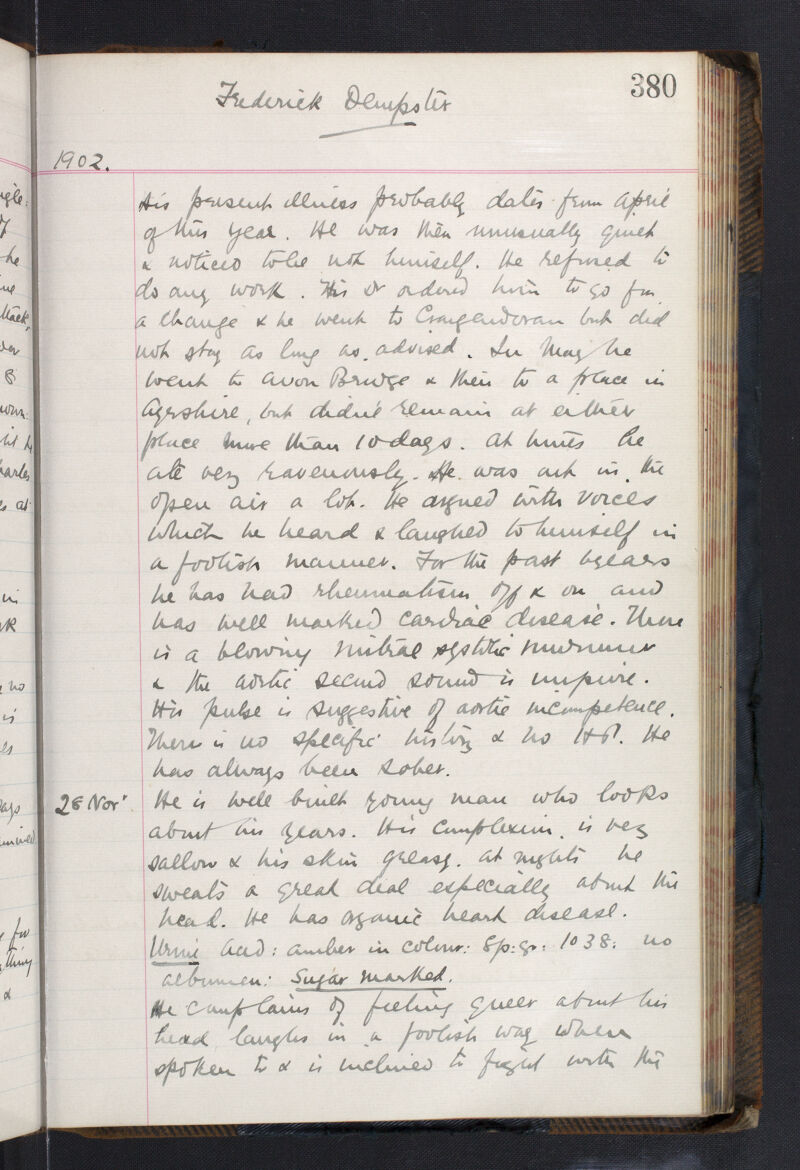 380
Frederick Dempster
1902.
His present illness probably dates from April
of this year. He was then unusually quiet
& noticed to be not himself. He refused to
do any work. His Dr ordered him to go for
a change & he went to Craigendoran but did
not stay as long as advised. In May he
went to Avon Bridge & then to a place in
Ayrshire, but didn't remain at either
place more than 10 days. At times he
ate very ravenously. He was out in the
open air a lot. He argued with voices
which he heard & laughed to himself in
a foolish manner. For the past 6 years
he has had rheumatism off & on and
has well marked cardiac disease. There
is a blowing mitral systolic murmur
& the aortic second sound is impure.
His pulse is suggestive of aortic incompetence.
There is no specific history & no HP. He
has always been sober.
28 Nov' He is well built young man who looks
about his years. His complexion is very
sallow & his skin greasy. At nights he
sweats a great deal especially about the
head. He has organic heart disease.
Urine Acid: amber in colour: Sp: gr: 1038: no
albumen: Sugar marked.
He complains of feeling queer about his
head laughs in a foolish way when
spoken to & is inclined to fight with the